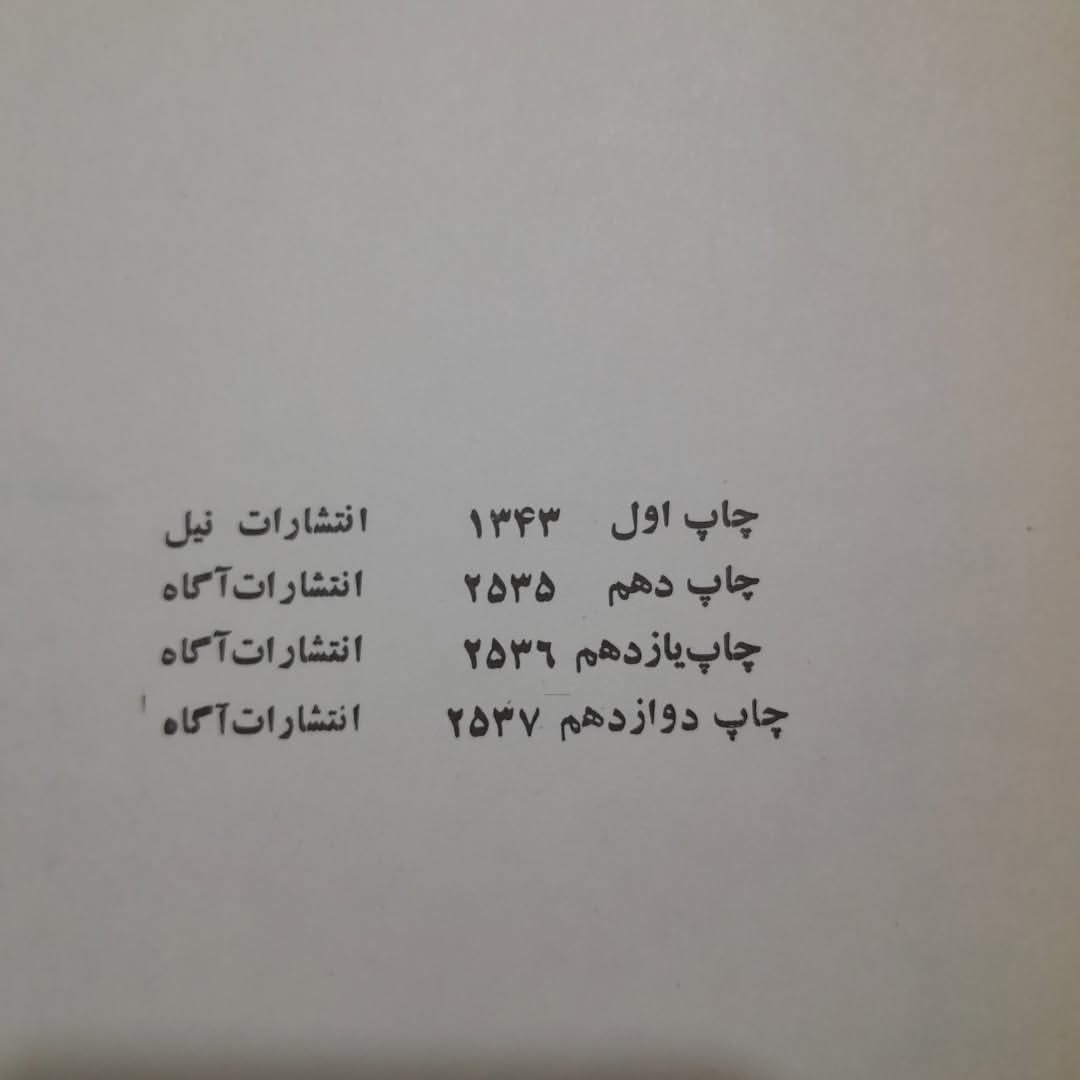 چاپ اول ۱۳۴۳ انتشارات نیل
چاپ دهم ۲۵۳۵ انتشارات آگاه
چاپ یازدهم ۲۵۳۶ انتشارات آگاه
چاپ دوازدهم ۲۵۳۷ انتشارات آگاه